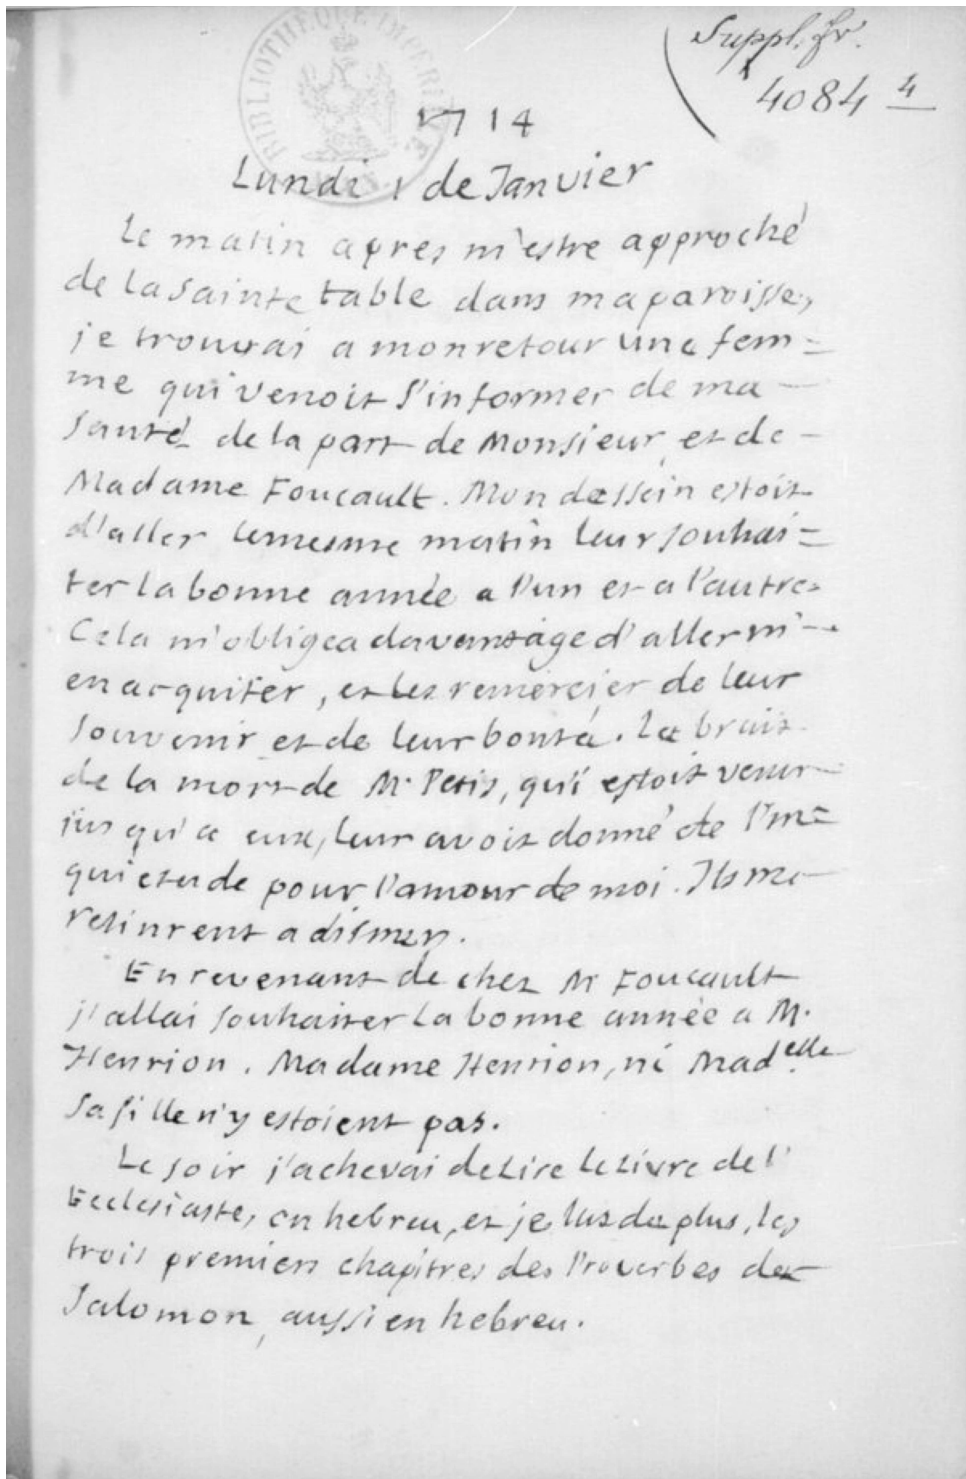 BIBLIOTHÈQUE IMPÉRIALE
Suppl. fr.
4084 4
1714
Lundi 1 de Janvier
Le matin apres m'estre approché
de la sainte table dans ma paroisse,
je trouvai a mon retour une fem=
me qui venoit s'informer de ma
santé de la part de Monsieur et de
Madame Foucault. Mon dessein estoit
d'aller le mesme matin leur souhai=
ter la bonne année a l'un et a l'autre.
Cela m'obligea davantage d'aller m'
en acquiter, et les remercier de leur
souvenir et de leur bonté. Le bruit
de la mort de Mr Petis, qui estoit venu
jusqu'a eux, leur avoit donné de l'in=
quietude pour l'amour de moi. Ils me
retinrent a disner.
En revenant de chez Mr Foucault
j'allai souhaitter la bonne année a M.
Henrion. Madame Henrion, ni Mad.elle
sa fille n'y estoient pas.
Le soir j'achevai de lire le livre de l'
Ecclesiaste, en hebreu, et je lus de plus, les
trois premiers chapitres des Proverbes de
Salomon, aussi en hebreu.